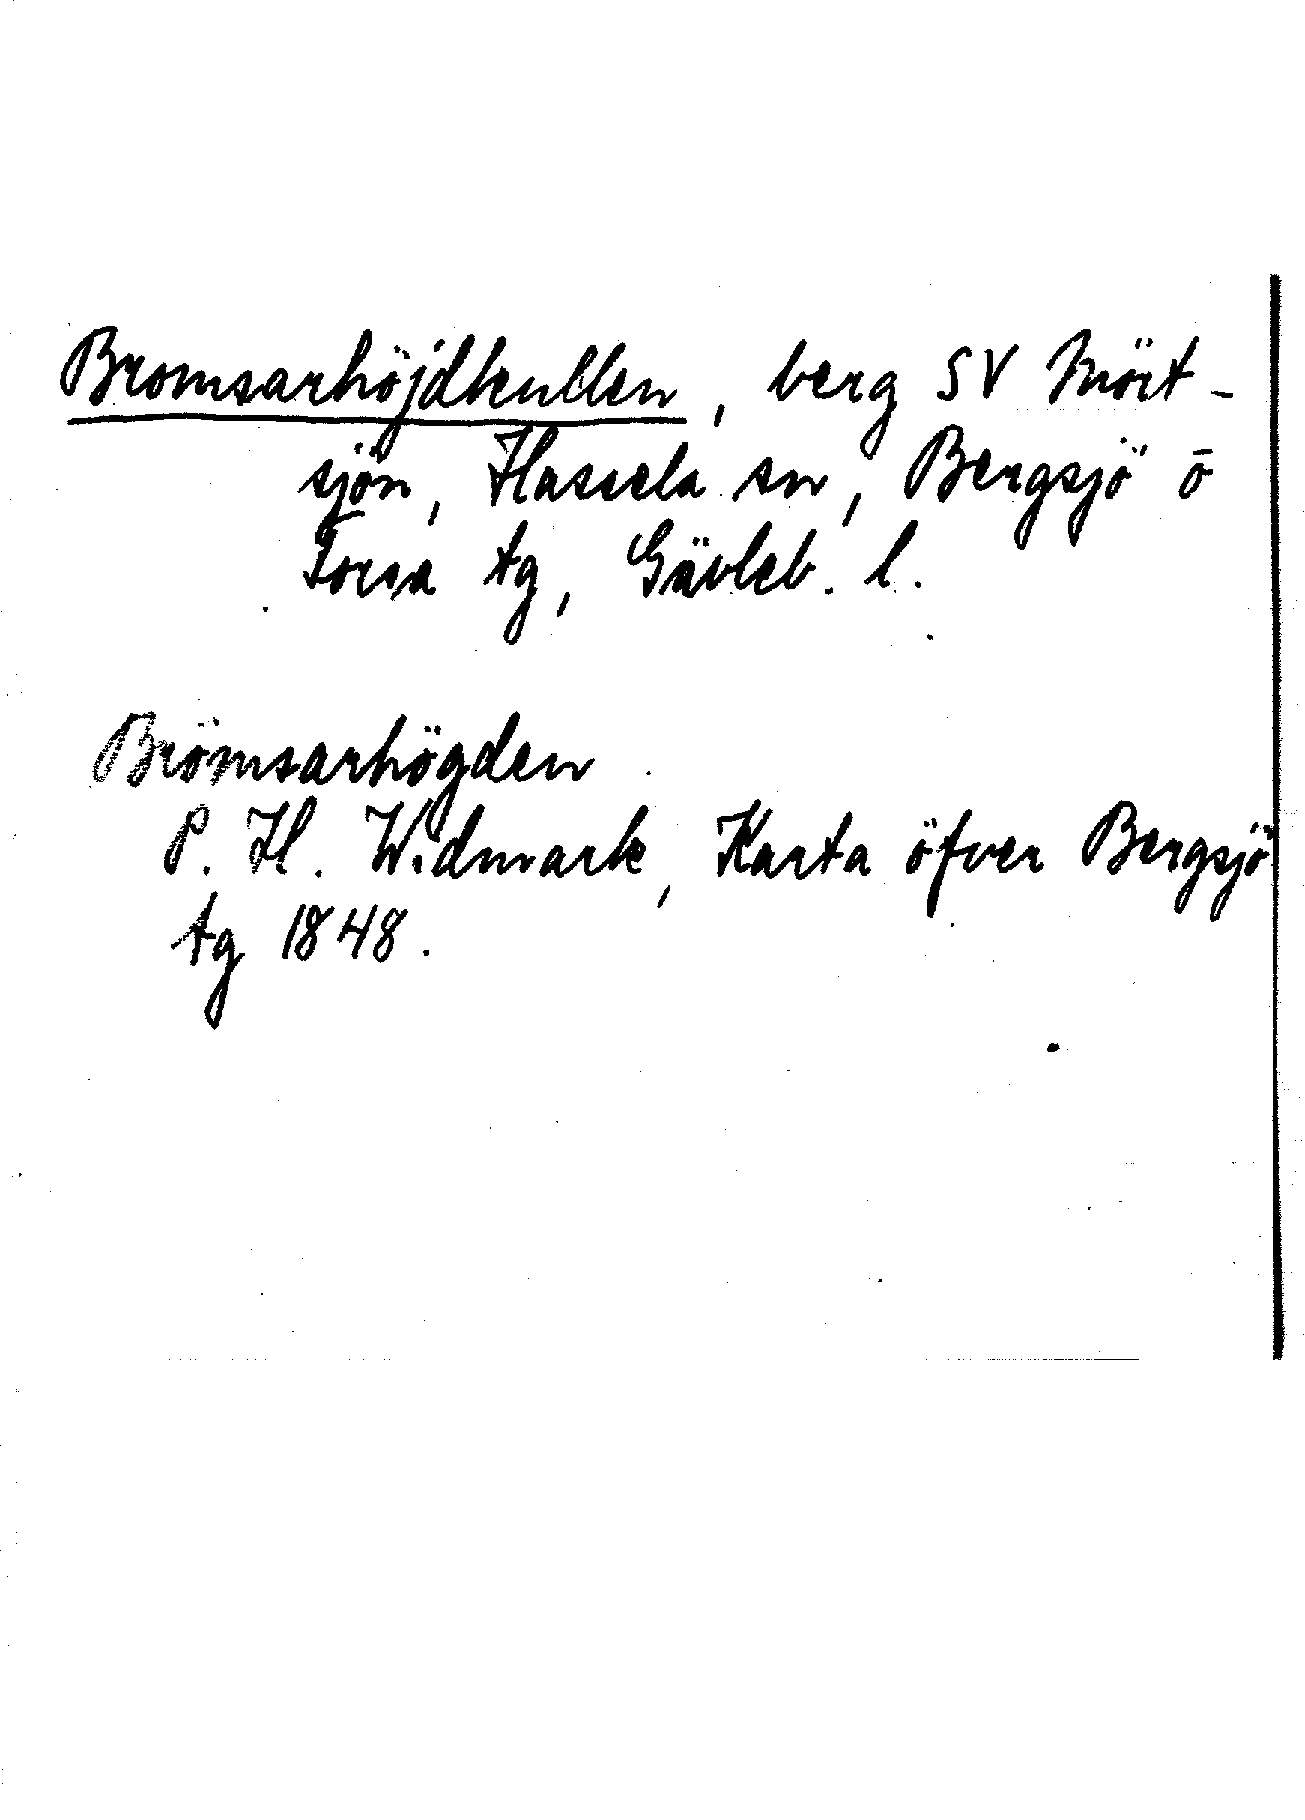 Bromsarhöjdkullen, berg SV Mört-
sjön, Hassela sn, Bergsjö o
Forsa tg, Gävleb. l.
Brömsarhögden
P. H. Widmark, Karta öfver Bergsjö
tg 1848.